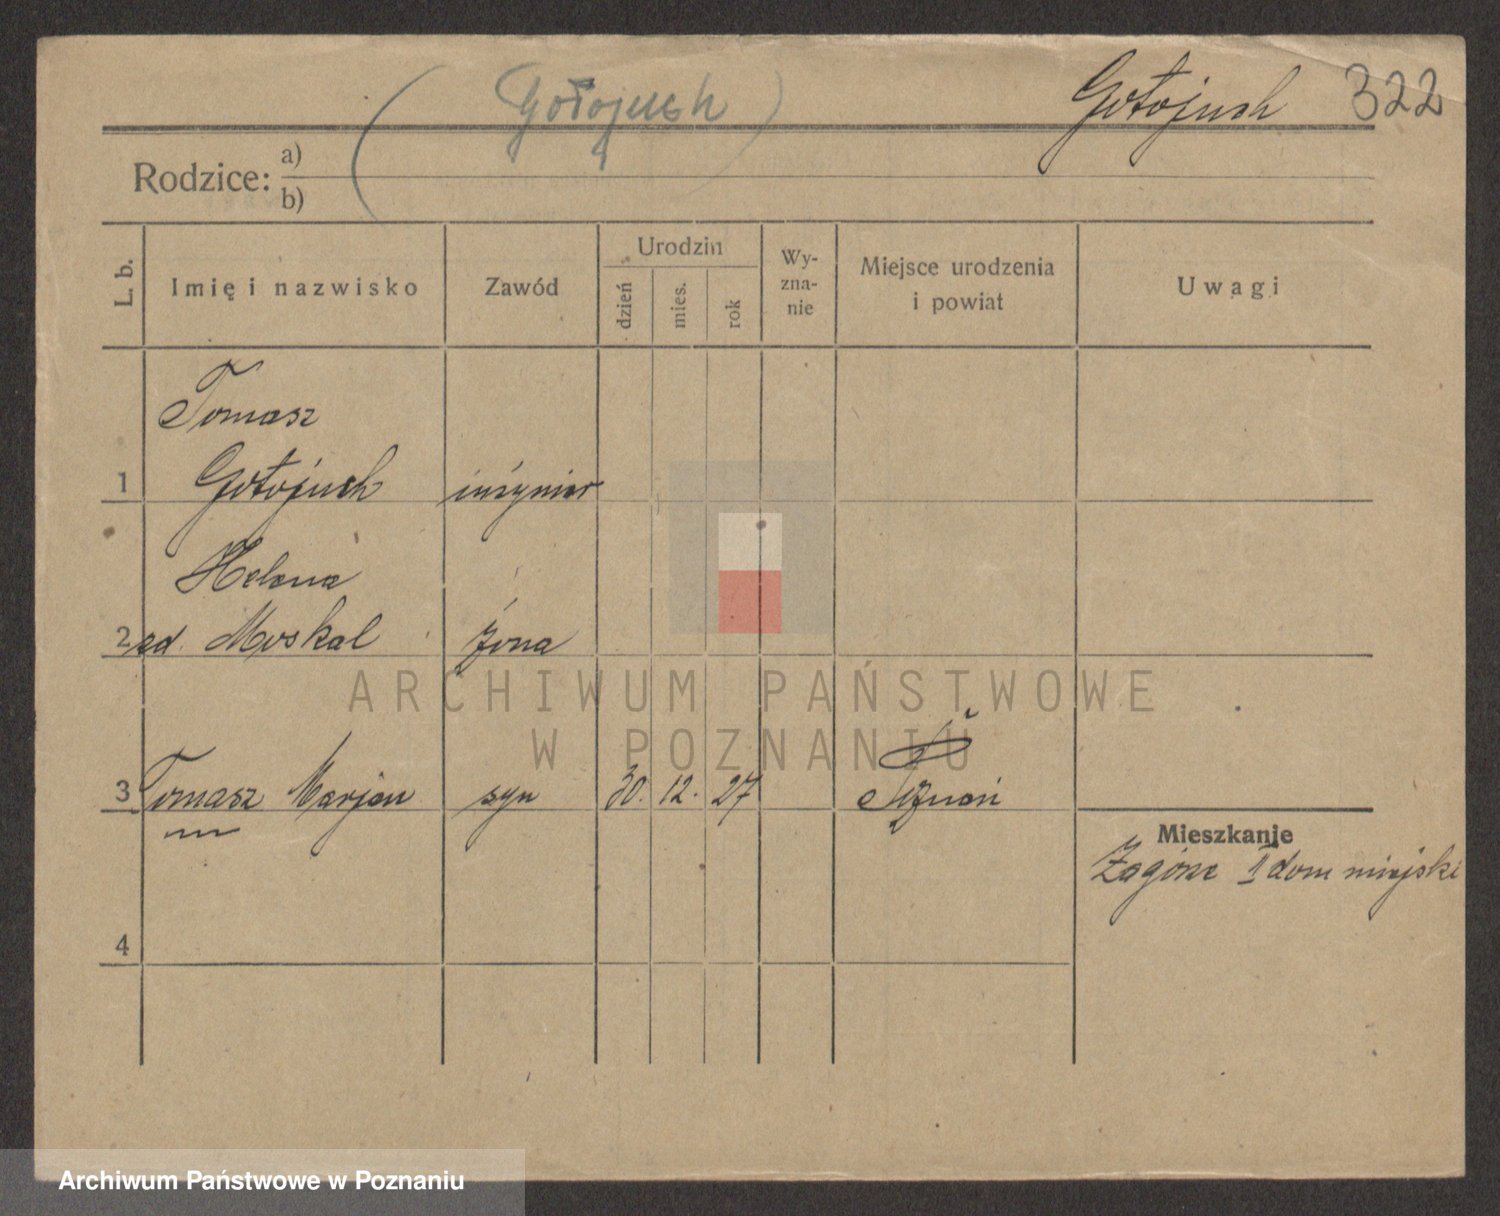 (Gołojuch) Gołojuch 322
Rodzice: a)
b)
L. b. Imię i nazwisko Zawód Urodzin Wy-zna-nie Miejsce urodzenia i powiat Uwagi
dzień mies. rok
Tomasz
1 Gołojuch inżynier
Helena
2 zd. Moskal żona
3 Tomasz Marjan syn 30. 12. 27 Poznań
Mieszkanie
Zagórze II dom miejski
4
ARCHIWUM PAŃSTWOWE
W POZNANIU
Archiwum Państwowe w Poznaniu